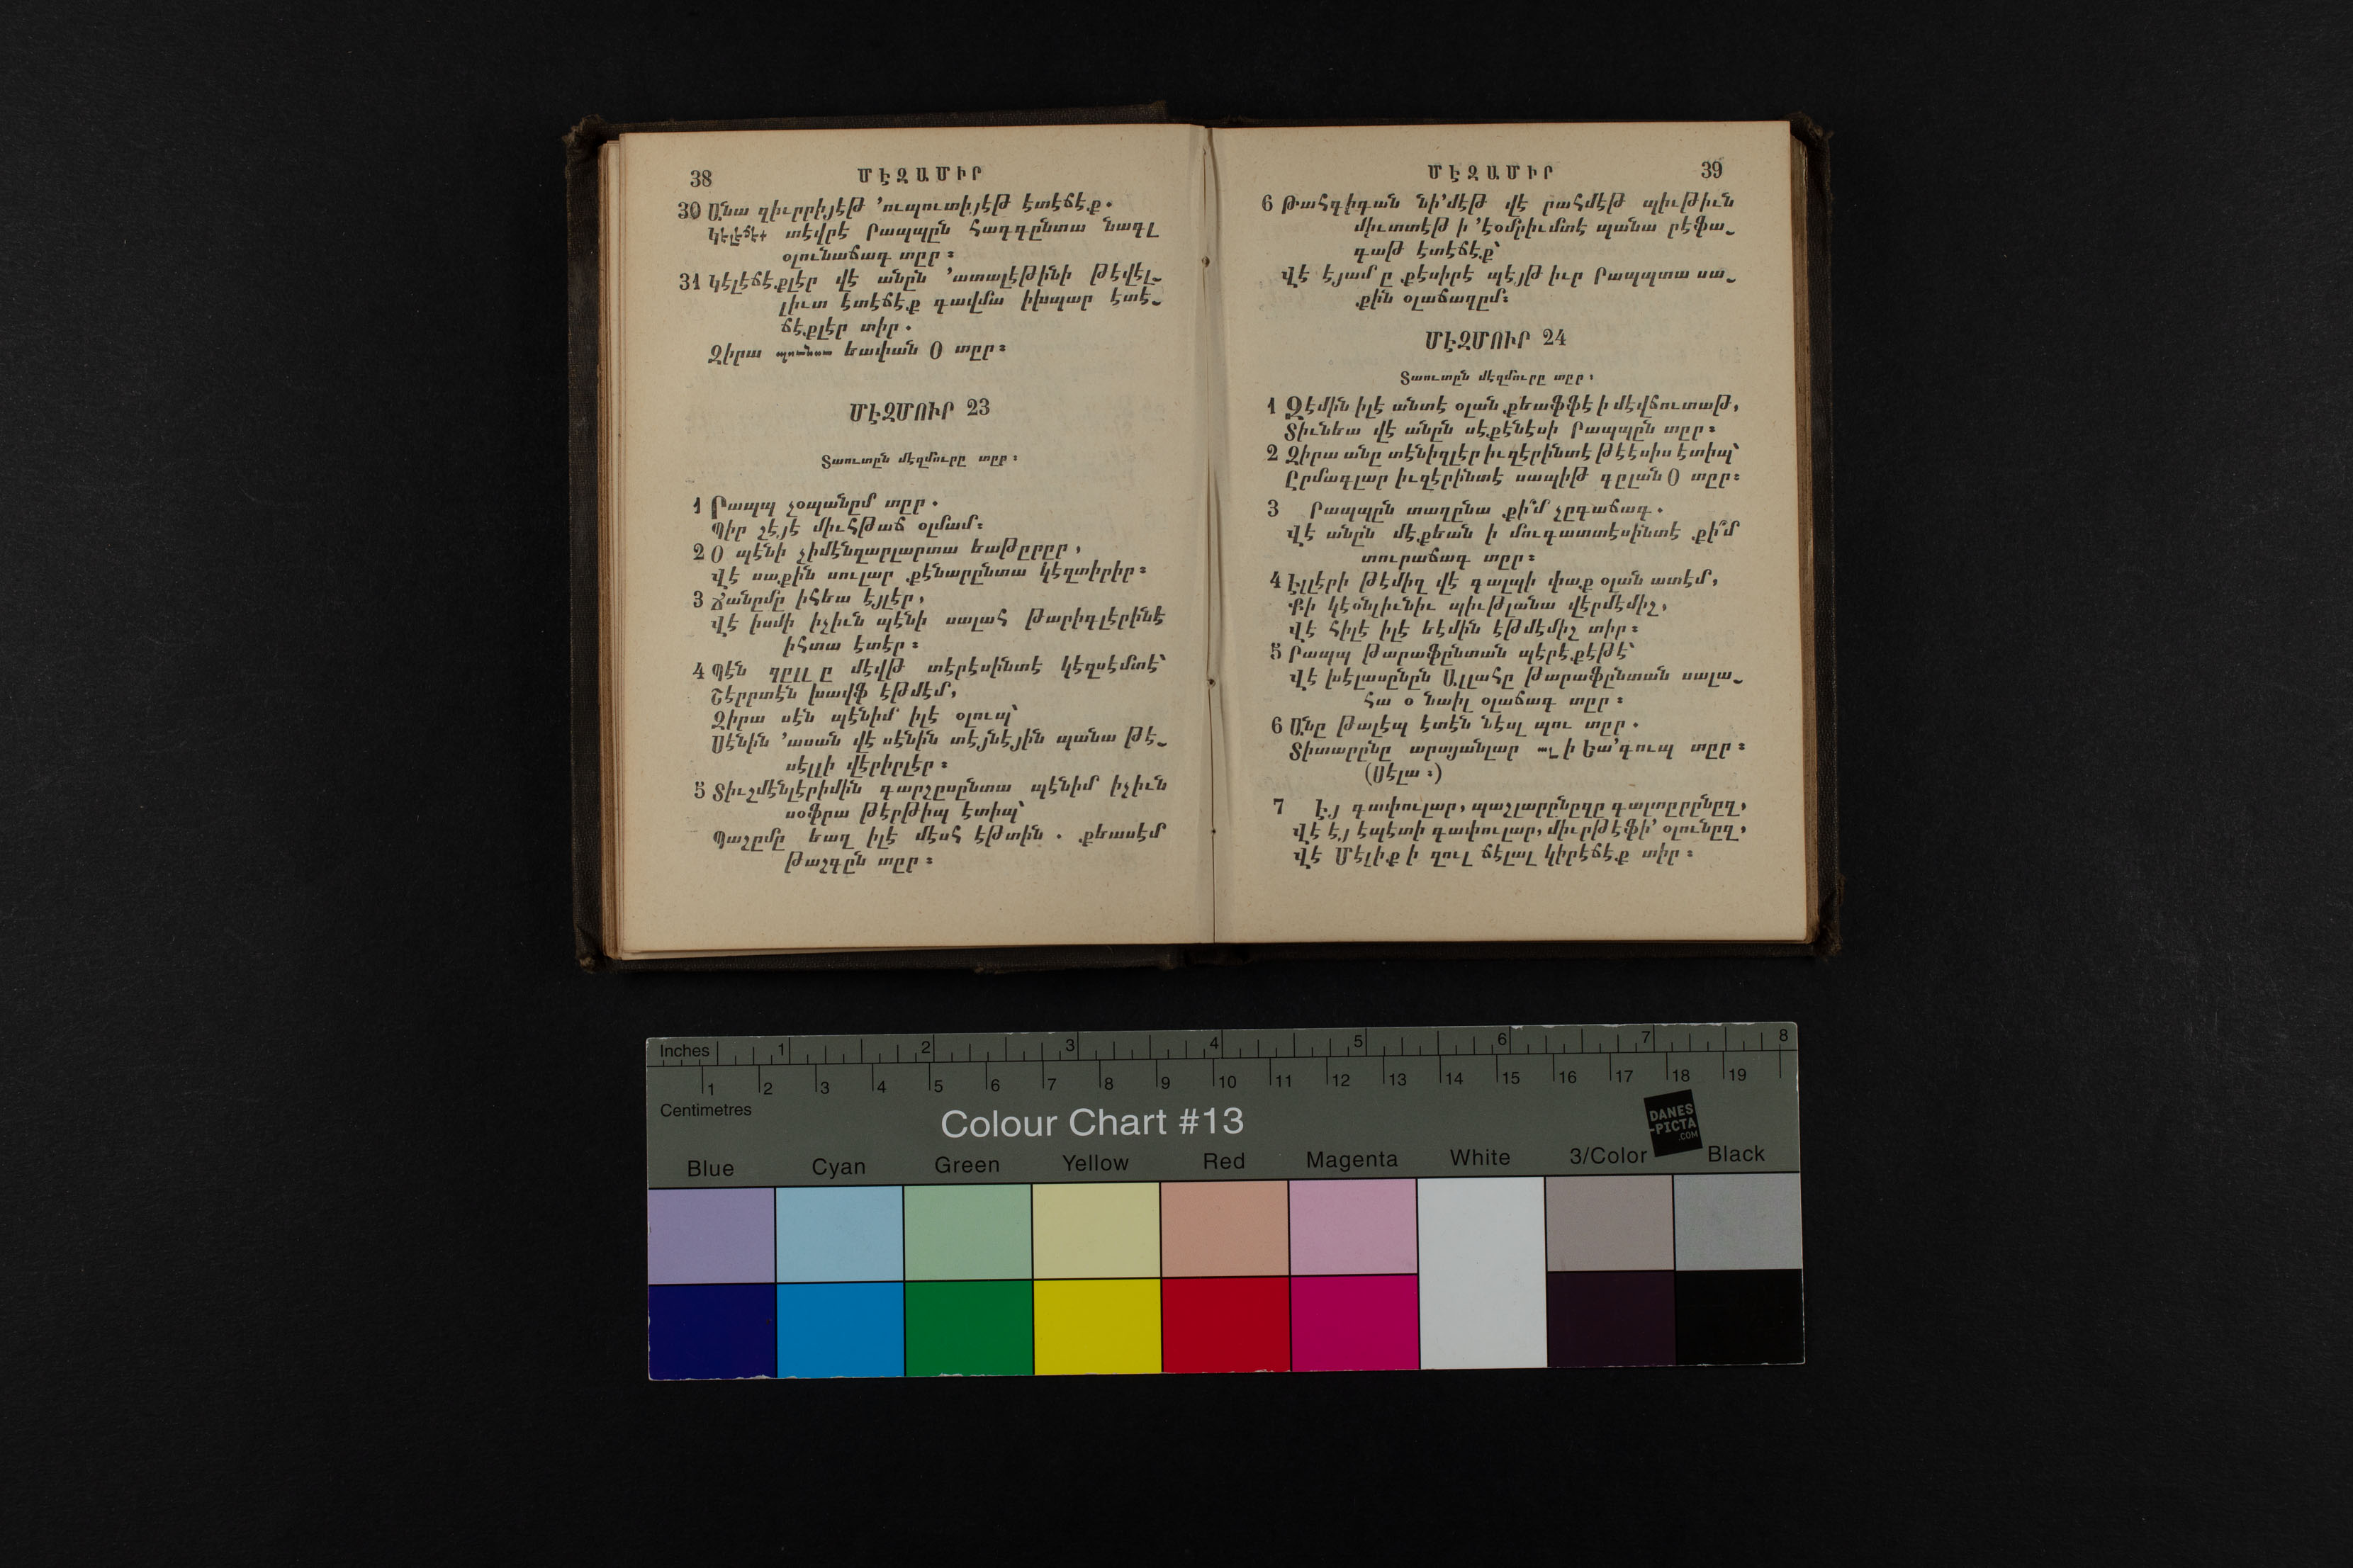 38 ՄԷԶԱՄԻՐ
30 Անա զիւրրիյէթ ՚ուպուտիյէթ էտէճէք.
կէլէճէկ տէվրէ Րապպըն հագգընտա նագլ
օլունաճագ տըր։
31 Կէլէճէքլէր վէ անըն ՚ատալէթինի թէվէլ֊
լիւտ էտէճէք գավմա իխպար էտէ֊
ճէքլէր տիր.
Զիրա եափան Օ տըր։
ՄԷԶՄՈՒՐ 23
Տաուտըն մէզմուրը տըր։
1 Րապպ չօպանըմ տըր.
Պիր շէյէ միւհթաճ օլմամ։
2 Օ պէնի չիմէնզարլարտա եաթըրըր,
Վէ սաքին սուլար քէնարընտա կէզտիրիր։
3 Ճանըմը իհեա էյլէր,
Վէ իսմի իչիւն պէնի սալահ թարիգլէրինէ
իհտա էտէր։
4 Պէն զըլլ ը մէվթ տէրէսինտէ կէզսէմտէ՝
Շէրրտէն խավֆ էթմէմ,
Զիրա սէն պէնիմ իլէ օլուպ՝
Սէնին ՚ասան վէ սէնին տէյնէյին պանա թէ֊
սէլլի վէրիրլէր։
5 Տիւշմէնլէրիմին գարշըսընտա պէնիմ իչիւն
սօֆրա թէրթիպ էտիպ՝
Պաշըմը եաղ իլէ մէսհ էթտին. քեասէմ
թաշգըն տըր։
ՄԷԶԱՄԻՐ 39
6 Թահգիգան նի՚մէթ վէ րահմէթ պիւթիւն
միւտտէթ ի ՚էօմրիւմտէ պանա րէֆա֊
գաթ էտէճէք՝
Վէ էյամ ը քէսիրէ պէյթ իւր Րապպտա սա֊
քին օլաճաղըմ։
ՄԷԶՄՈՒՐ 24
Տաուտըն մէզմուրը տըր,
1 Զէմին իլէ անտէ օլան քեաֆֆէ ի մէվճուտաթ,
Տիւնեա վէ անըն սէքէնէսի Րապպըն տըր։
2 Զիրա անը տէնիզլէր իւզէրինտէ թէէսիս էտիպ՝
Ըրմագլար իւզէրինտէ սապիթ գըլան Օ տըր։
3 Րապպըն տաղընա քի՞մ չըգաճագ.
Վէ անըն մէքեան ի մուգատտէսինտէ քի՞մ
տուրաճագ տըր։
4 Էլլէրի թէմիզ վէ գալպի փաք օլան ատէմ,
Քի կէօնլիւնիւ պիւթլանա վէրմէմիշ,
Վէ հիլէ իլէ եէմին էթմէմիշ տիր։
5 Րապպ թարաֆընտան պէրէքէթէ՝
Վէ խէլասընըն Ալլահը թարաֆընտան սալա֊
հա օ նաիլ օլաճագ տըր։
6 Անը թալէպ էտէն նէսլ պու տըր.
Տիտարընը արայանլար ալ ի Եա՚գուպ տըր։
(Սէլա։)
7 Էյ գափուլար, պաշլարընըզը գալտըրընըզ,
Վէ էյ էպէտի գափուլար, միւրթէֆի՚ օլունըզ,
Վէ Մէլիք ի զուլ ճէլալ կիրէճէք տիր։
Inches 1 2 3 4 5 6 7 8
1 2 3 4 5 6 7 8 9 10 11 12 13 14 15 16 17 18 19
Centimetres
Colour Chart #13
DANES
-PICTA
.COM
Blue Cyan Green Yellow Red Magenta White 3/Color Black